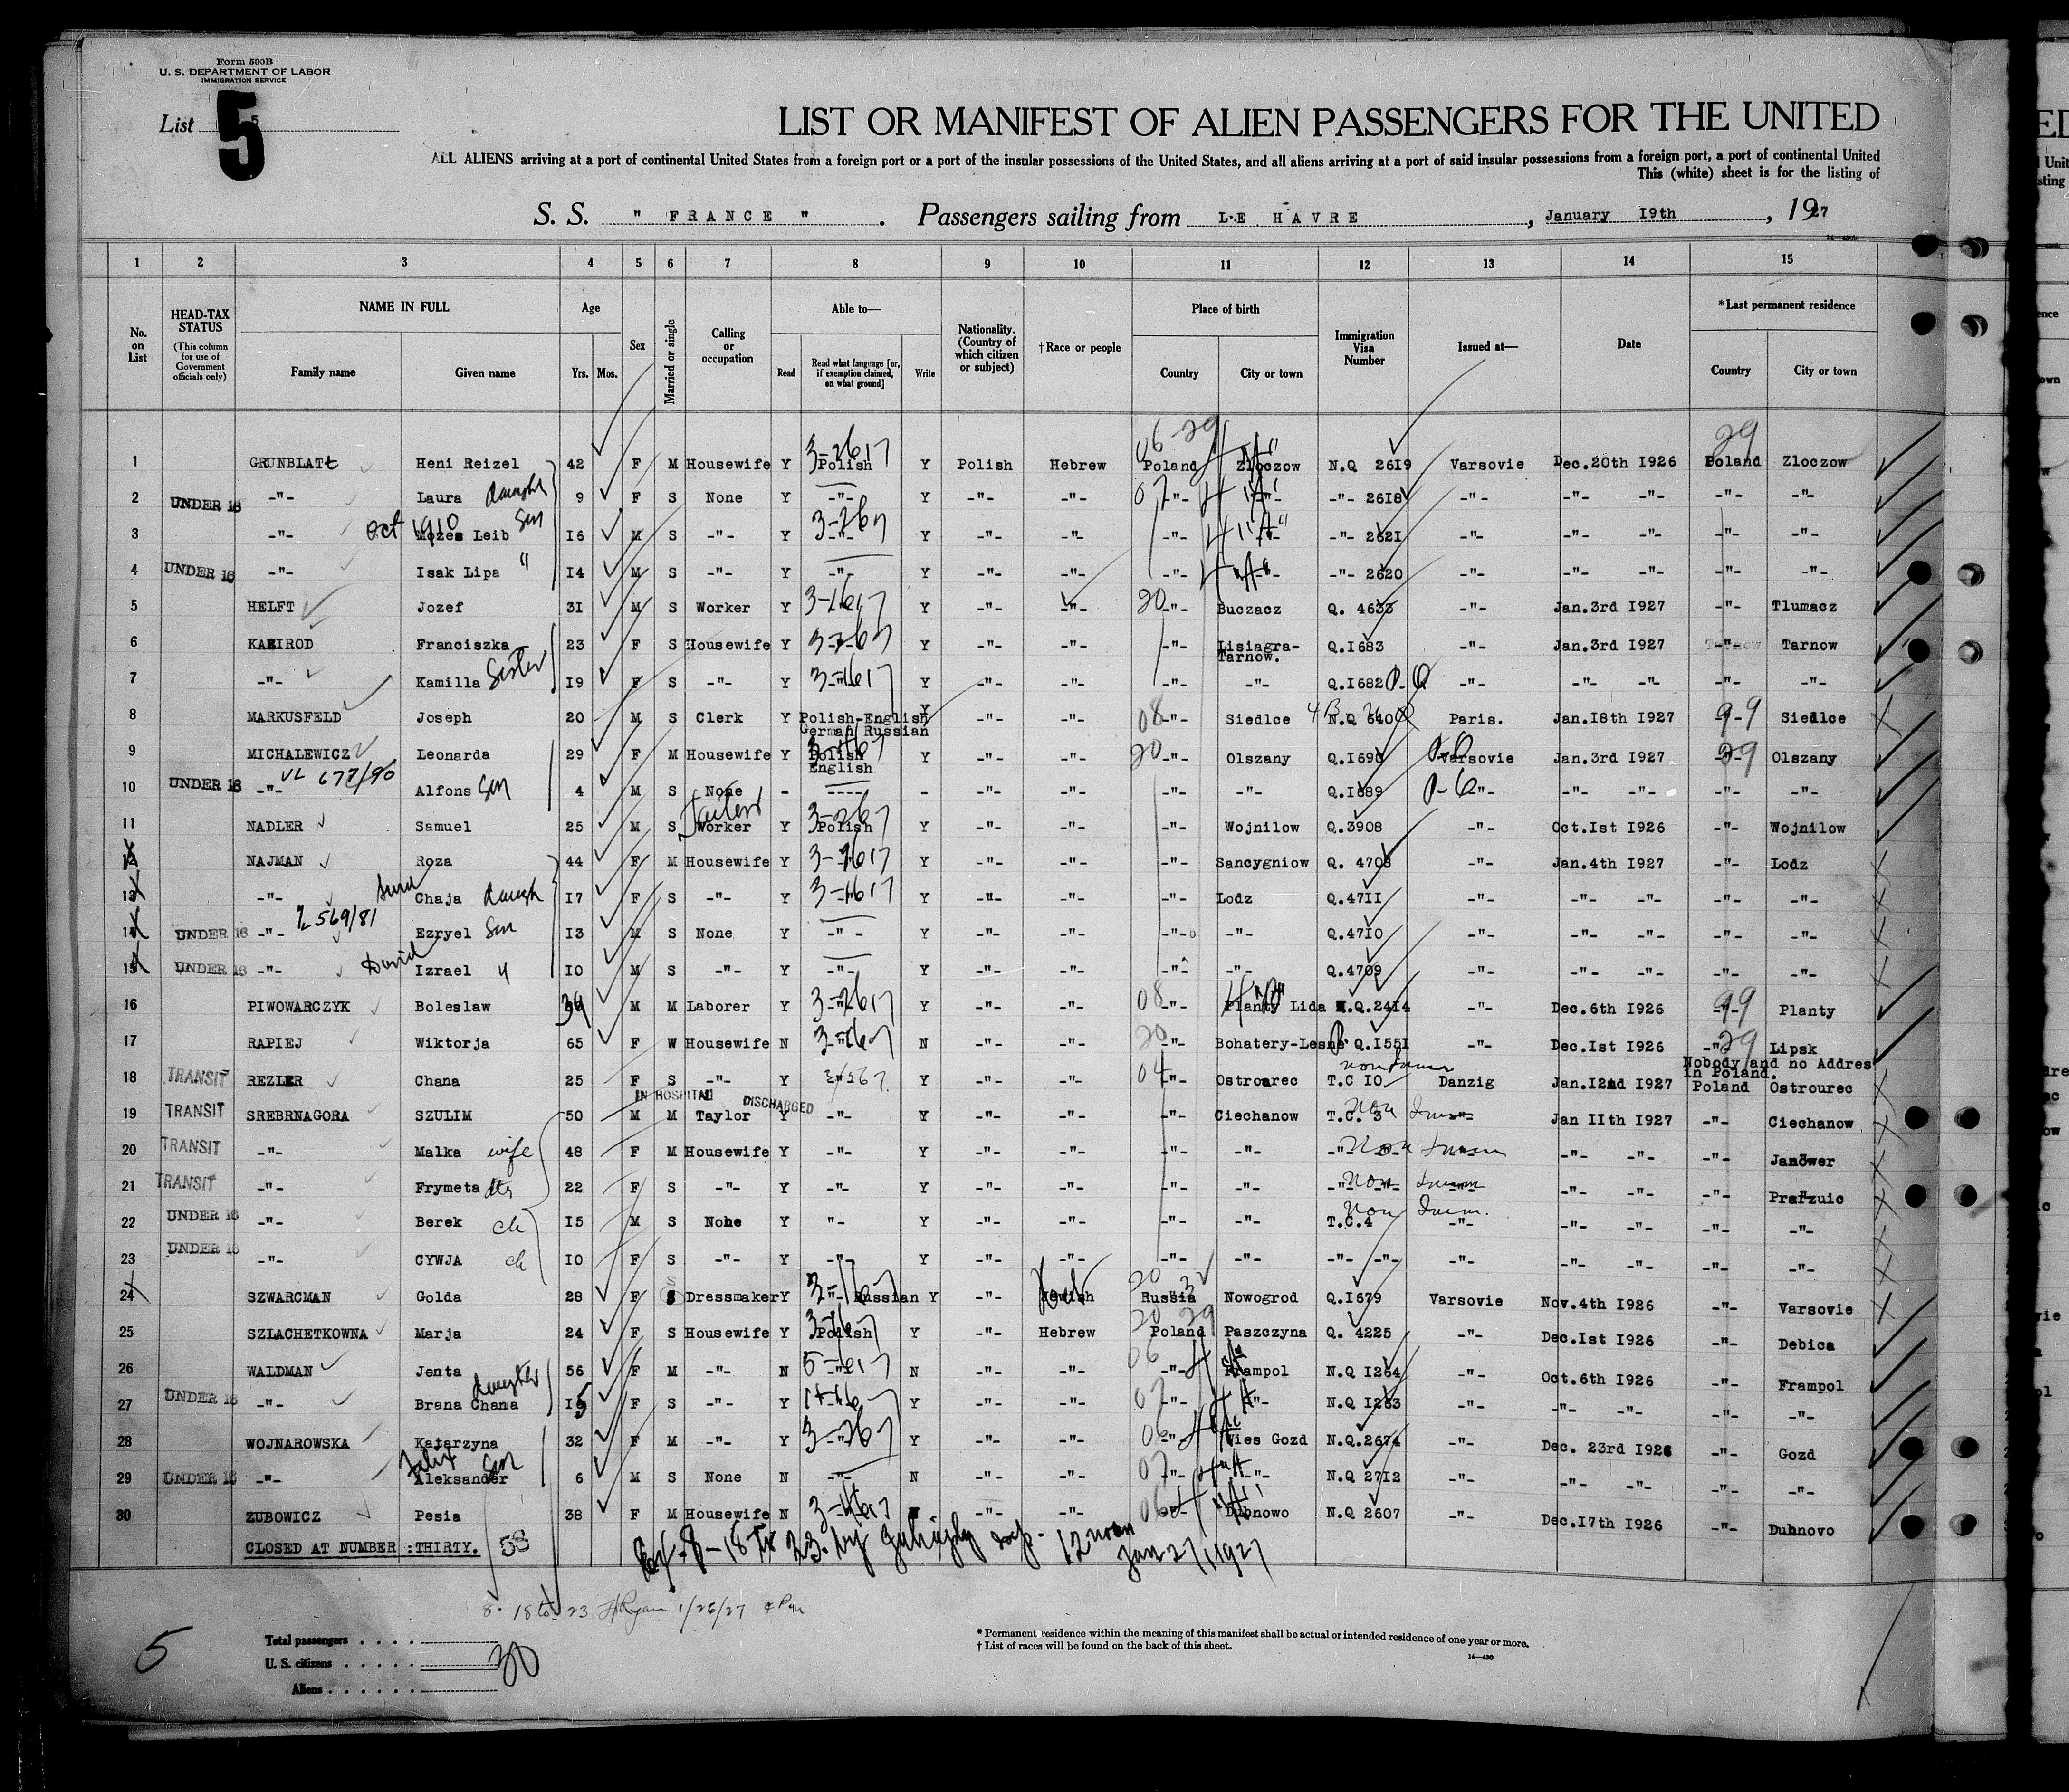 Form 500B
U. S. DEPARTMENT OF LABOR
IMMIGRATION SERVICE
List 5
5
LIST OR MANIFEST OF ALIEN PASSENGERS FOR THE UNITED
ALL ALIENS arriving at a port of continental United States from a foreign port or a port of the insular possessions of the United States, and all aliens arriving at a port of said insular possessions from a foreign port, a port of continental United
This (white) sheet is for the listing of
S. S. " FRANCE ". Passengers sailing from LE HAVRE, January 19th, 1927
1 2 3 4 5 6 7 8 9 10 11 12 13 14 15
No. on List
HEAD-TAX STATUS (This column for use of Government officials only)
NAME IN FULL Family name Given name
Age Yrs. Mos.
Sex
Married or single
Calling or occupation
Able to— Read Read what language [or, if exemption claimed, on what ground] Write
Nationality. (Country of which citizen or subject)
†Race or people
Place of birth Country City or town
Immigration Visa Number
Issued at—
Date
*Last permanent residence Country City or town
06-29 29
1 GRUNBLATt Heni Reizel 42 F M Housewife Y Polish 3-2617 Y Polish Hebrew Poland Zloczow N.Q 2619 Varsovie Dec.20th 1926 Poland Zloczow
2 UNDER 16 -"- Laura 9 F S None Y -"- Y -"- -"- -"- -"- -"- 2618 -"- -"- -"- -"- -"-
3 -"- Oct 1910 Mozes Leib Son 16 M S -"- Y -"- Y -"- -"- -"- -"- -"- 2621 -"- -"- -"- -"- -"-
4 UNDER 16 -"- Isak Lipa " 14 M S -"- Y -"- Y -"- -"- -"- -"- -"- 2620 -"- -"- -"- -"- -"-
5 HELFT Jozef 31 M S Worker Y Y -"- -"- 20 -"- Buczacz Q. 4633 -"- Jan.3rd 1927 -"- Tlumacz
6 KAZIROD Franciszka 23 F S Housewife Y Y -"- -"- -"- Lisiagra-Tarnow. Q.1683 -"- Jan.3rd 1927 Tarnow
7 -"- Kamilla Sister 19 F S -"- Y Y -"- -"- -"- -"- Q.1682 -"- -"- -"- -"- -"-
8 MARKUSFELD Joseph 20 M S Clerk Y Polish-English German Russian Y -"- -"- 08 -"- Siedlce N.Q 640 Paris. Jan.18th 1927 -"- Siedlce
9 MICHALEWICZ Leonarda 29 F M Housewife Y Polish English Y -"- -"- 20 -"- Olszany Q.1690 Varsovie Jan.3rd 1927 29 Olszany
10 UNDER 16 -"- VL 677/90 Alfons Son 4 M S None - ---- - -"- -"- -"- -"- Q.1689 -"- -"- -"- -"- -"-
11 NADLER Samuel 25 M S Worker Y Polish Y -"- -"- -"- Wojnilow Q.3908 -"- Oct.1st 1926 -"- Wojnilow
12 NAJMAN Roza 44 F M Housewife Y Y -"- -"- -"- Sancygniow Q. 4708 -"- Jan.4th 1927 -"- Lodz
13 -"- Chaja daugh 17 F S -"- Y Y -"- -"- -"- Lodz Q.4711 -"- -"- -"- -"- -"-
14 UNDER 16 -"- 2569/81 Ezryel Son 13 M S None Y -"- Y -"- -"- -"- -"- Q.4710 -"- -"- -"- -"- -"-
15 UNDER 16 -"- David Izrael " 10 M S -"- Y -"- Y -"- -"- -"- -"- Q.4709 -"- -"- -"- -"- -"-
16 PIWOWARCZYK Boleslaw 39 M M Laborer Y Y -"- -"- 08 -"- Planty Lida N.Q.2414 -"- Dec.6th 1926 -"- Planty
17 RAPIEJ Wiktorja 65 F W Housewife N N -"- -"- 20 -"- Bohatery-Lesne Q.1551 -"- Dec.1st 1926 -"- Lipsk
Nobody and no Addres in Poland.
18 TRANSIT REZLER Chana 25 F S -"- Y Y -"- -"- 04 -"- Ostrowrec T.C 10 Danzig Jan.12nd 1927 Poland Ostrourec
IN HOSPITAL DISCHARGED
19 TRANSIT SREBRNAGORA SZULIM 50 M M Taylor Y -"- Y -"- -"- -"- Ciechanow T.C. 3 -"- Jan 11th 1927 -"- Ciechanow
20 TRANSIT -"- Malka wife 48 F M Housewife Y -"- Y -"- -"- -"- -"- -"- -"- -"- -"- -"- Janower
21 TRANSIT -"- Frymeta dtr 22 F S -"- Y -"- Y -"- -"- -"- -"- -"- -"- -"- -"- -"-
22 UNDER 16 -"- Berek ch 15 M S None Y "- Y -"- -"- -"- -"- T.C.4 -"- -"- -"- -"- -"-
23 UNDER 16 -"- CYWJA ch 10 F S -"- Y -"- Y -"- -"- -"- -"- -"- -"- -"- -"- -"- -"- -"-
24 SZWARCMAN Golda 28 F S Dressmaker Y Russian Y -"- Russia Nowogrod Q.1679 Varsovie Nov.4th 1926 -"- Varsovie
25 SZLACHETKOWNA Marja 24 F S Housewife Y Polish Y -"- Hebrew Poland Paszczyna Q. 4225 -"- Dec.1st 1926 -"- Debica
26 WALDMAN Jenta 56 F M -"- N N -"- -"- 06 -"- Frampol N.Q 1264 -"- Oct.6th 1926 -"- Frampol
27 UNDER 16 -"- Brana Chana daughter 15 F S -"- Y Y -"- -"- 07 -"- -"- N.Q 1263 -"- -"- -"- -"- -"-
28 WOJNAROWSKA Katarzyna 32 F M -"- Y Y -"- -"- 06 -"- Wies Gozd N.Q.2674 -"- Dec. 23rd 1926 -"- Gozd
29 UNDER 16 -"- Aleksander Son 6 M S None N -"- N -"- -"- 07 -"- -"- N.Q 2712 -"- -"- -"- -"- -"-
30 ZUBOWICZ Pesia 38 F M Housewife N -"- -"- 06 Dubnowo N.Q 2607 -"- Dec.17th 1926 -"- Dubnovo
CLOSED AT NUMBER :THIRTY.
8-18 to 23 by insp. 12 noon Jan 27/1927
8. 18 to 23 HRyan 1/26/27
5
Total passengers
U. S. citizens 30
Aliens
* Permanent residence within the meaning of this manifest shall be actual or intended residence of one year or more.
† List of races will be found on the back of this sheet.